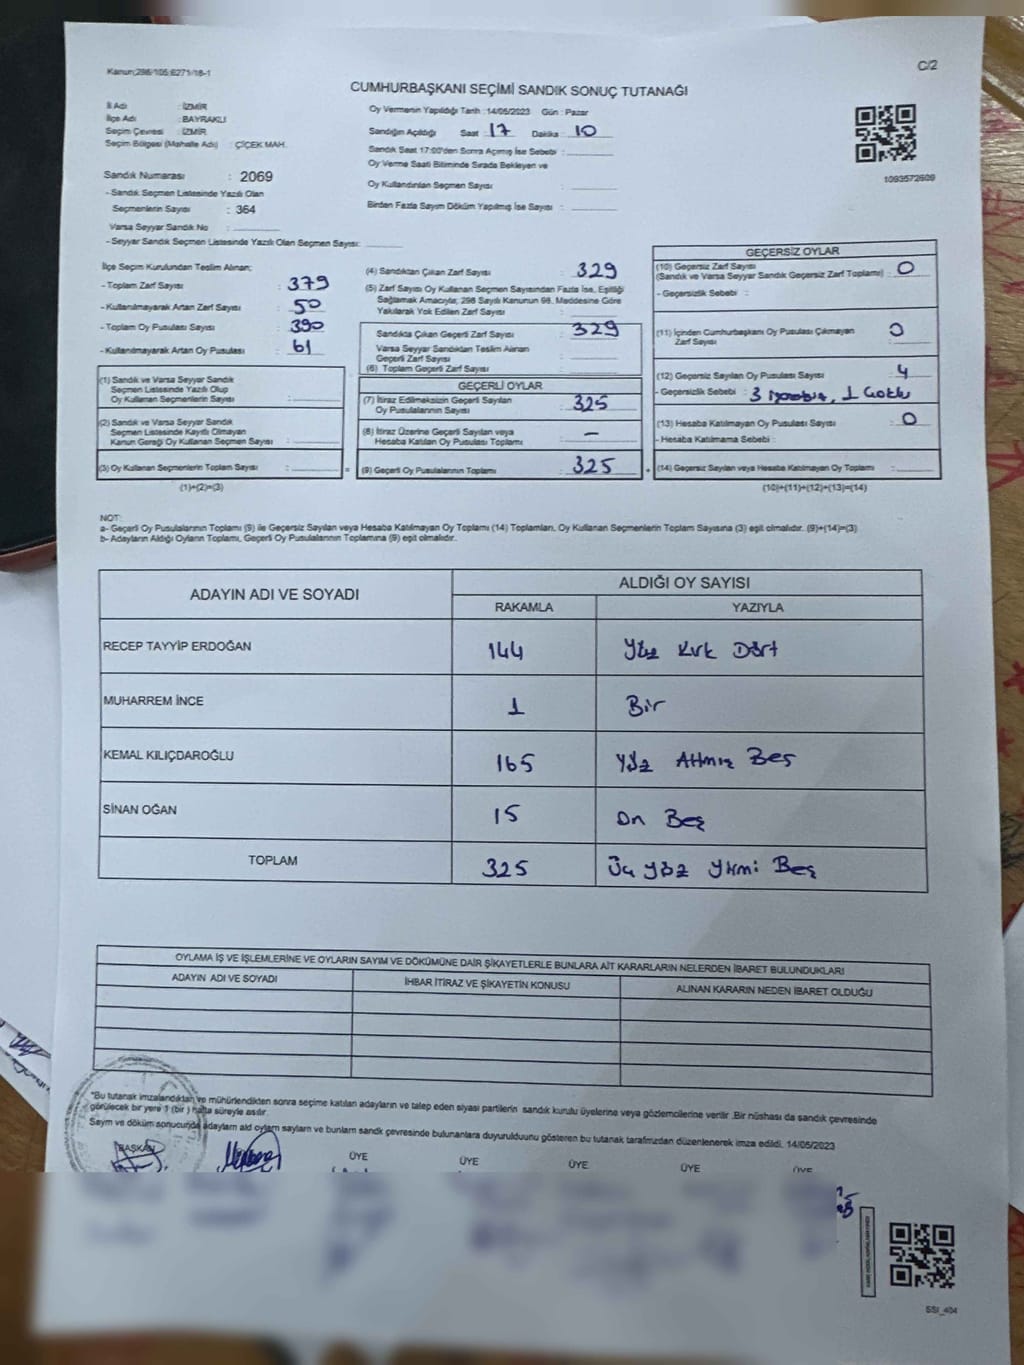 Kanun:298/105;6271/18-1
C/2
CUMHURBAŞKANI SEÇİMİ SANDIK SONUÇ TUTANAĞI
İli Adı : İZMİR
İlçe Adı : BAYRAKLI
Seçim Çevresi : İZMİR
Seçim Bölgesi (Mahalle Adı) : ÇİÇEK MAH.
Sandık Numarası : 2069
- Sandık Seçmen Listesinde Yazılı Olan
Seçmenlerin Sayısı : 364
Varsa Seyyar Sandık No :
- Seyyar Sandık Seçmen Listesinde Yazılı Olan Seçmen Sayısı:
Oy Vermenin Yapıldığı Tarih : 14/05/2023 Gün : Pazar
Sandığın Açıldığı Saat : 17 Dakika : 10
Sandık Saat 17:00'den Sonra Açılmış İse Sebebi :
Oy Verme Saati Bitiminde Sırada Bekleyen ve
Oy Kullandırılan Seçmen Sayısı :
Birden Fazla Sayım Döküm Yapılmış İse Sayısı :
1093572609
İlçe Seçim Kurulundan Teslim Alınan:
- Toplam Zarf Sayısı : 379
- Kullanılmayarak Artan Zarf Sayısı : 50
- Toplam Oy Pusulası Sayısı : 390
- Kullanılmayarak Artan Oy Pusulası : 61
(1) Sandık ve Varsa Seyyar Sandık
Seçmen Listesinde Yazılı Olup
Oy Kullanan Seçmenlerin Sayısı :
(2) Sandık ve Varsa Seyyar Sandık
Seçmen Listesinde Kayıtlı Olmayan
Kanun Gereği Oy Kullanan Seçmen Sayısı :
(3) Oy Kullanan Seçmenlerin Toplam Sayısı : =
(1)+(2)=(3)
(4) Sandıktan Çıkan Zarf Sayısı : 329
(5) Zarf Sayısı Oy Kullanan Seçmen Sayısından Fazla İse, Eşitliği
Sağlamak Amacıyla; 298 Sayılı Kanunun 98. Maddesine Göre
Yakılarak Yok Edilen Zarf Sayısı :
Sandıkta Çıkan Geçerli Zarf Sayısı : 329
Varsa Seyyar Sandıktan Teslim Alınan
Geçerli Zarf Sayısı :
(6) Toplam Geçerli Zarf Sayısı :
GEÇERLİ OYLAR
(7) İtiraz Edilmeksizin Geçerli Sayılan
Oy Pusulalarının Sayısı : 325
(8) İtiraz Üzerine Geçerli Sayılan veya
Hesaba Katılan Oy Pusulası Toplamı : –
(9) Geçerli Oy Pusulalarının Toplamı : 325 +
GEÇERSİZ OYLAR
(10) Geçersiz Zarf Sayısı : 0
(Sandık ve Varsa Seyyar Sandık Geçersiz Zarf Toplamı)
- Geçersizlik Sebebi :
(11) İçinden Cumhurbaşkanı Oy Pusulası Çıkmayan
Zarf Sayısı : 0
(12) Geçersiz Sayılan Oy Pusulası Sayısı : 4
- Geçersizlik Sebebi : 3 1
(13) Hesaba Katılmayan Oy Pusulası Sayısı : 0
- Hesaba Katılmama Sebebi :
(14) Geçersiz Sayılan veya Hesaba Katılmayan Oy Toplamı :
(10)+(11)+(12)+(13)=(14)
NOT:
a- Geçerli Oy Pusulalarının Toplamı (9) ile Geçersiz Sayılan veya Hesaba Katılmayan Oy Toplamı (14) Toplamları, Oy Kullanan Seçmenlerin Toplam Sayısına (3) eşit olmalıdır. (9)+(14)=(3)
b- Adayların Aldığı Oyların Toplamı, Geçerli Oy Pusulalarının Toplamına (9) eşit olmalıdır.
ADAYIN ADI VE SOYADI
ALDIĞI OY SAYISI
RAKAMLA YAZIYLA
RECEP TAYYİP ERDOĞAN 144 Yüz Kırk Dört
MUHARREM İNCE 1 Bir
KEMAL KILIÇDAROĞLU 165 Yüz Altmış Beş
SİNAN OĞAN 15 On Beş
TOPLAM 325 Üç Yüz Yirmi Beş
OYLAMA İŞ VE İŞLEMLERİNE VE OYLARIN SAYIM VE DÖKÜMÜNE DAİR ŞİKAYETLERLE BUNLARA AİT KARARLARIN NELERDEN İBARET BULUNDUKLARI
ADAYIN ADI VE SOYADI İHBAR İTİRAZ VE ŞİKAYETİN KONUSU ALINAN KARARIN NEDEN İBARET OLDUĞU
"Bu tutanak imzalandıktan ve mühürlendikten sonra seçime katılan adayların ve talep eden siyasi partilerin sandık kurulu üyelerine veya gözlemcilerine verilir .Bir nüshası da sandık çevresinde
görülecek bir yere 1 (bir ) hafta süreyle asılır.
Sayım ve döküm sonucunda adayların aldı oyların sayları ve bunların sandık çevresinde bulunanlara duyurulduunu gösteren bu tutanak tarafımızdan düzenlenerek imza edildi. 14/05/2023
BAŞKAN ÜYE ÜYE ÜYE ÜYE ÜYE
SSI_404